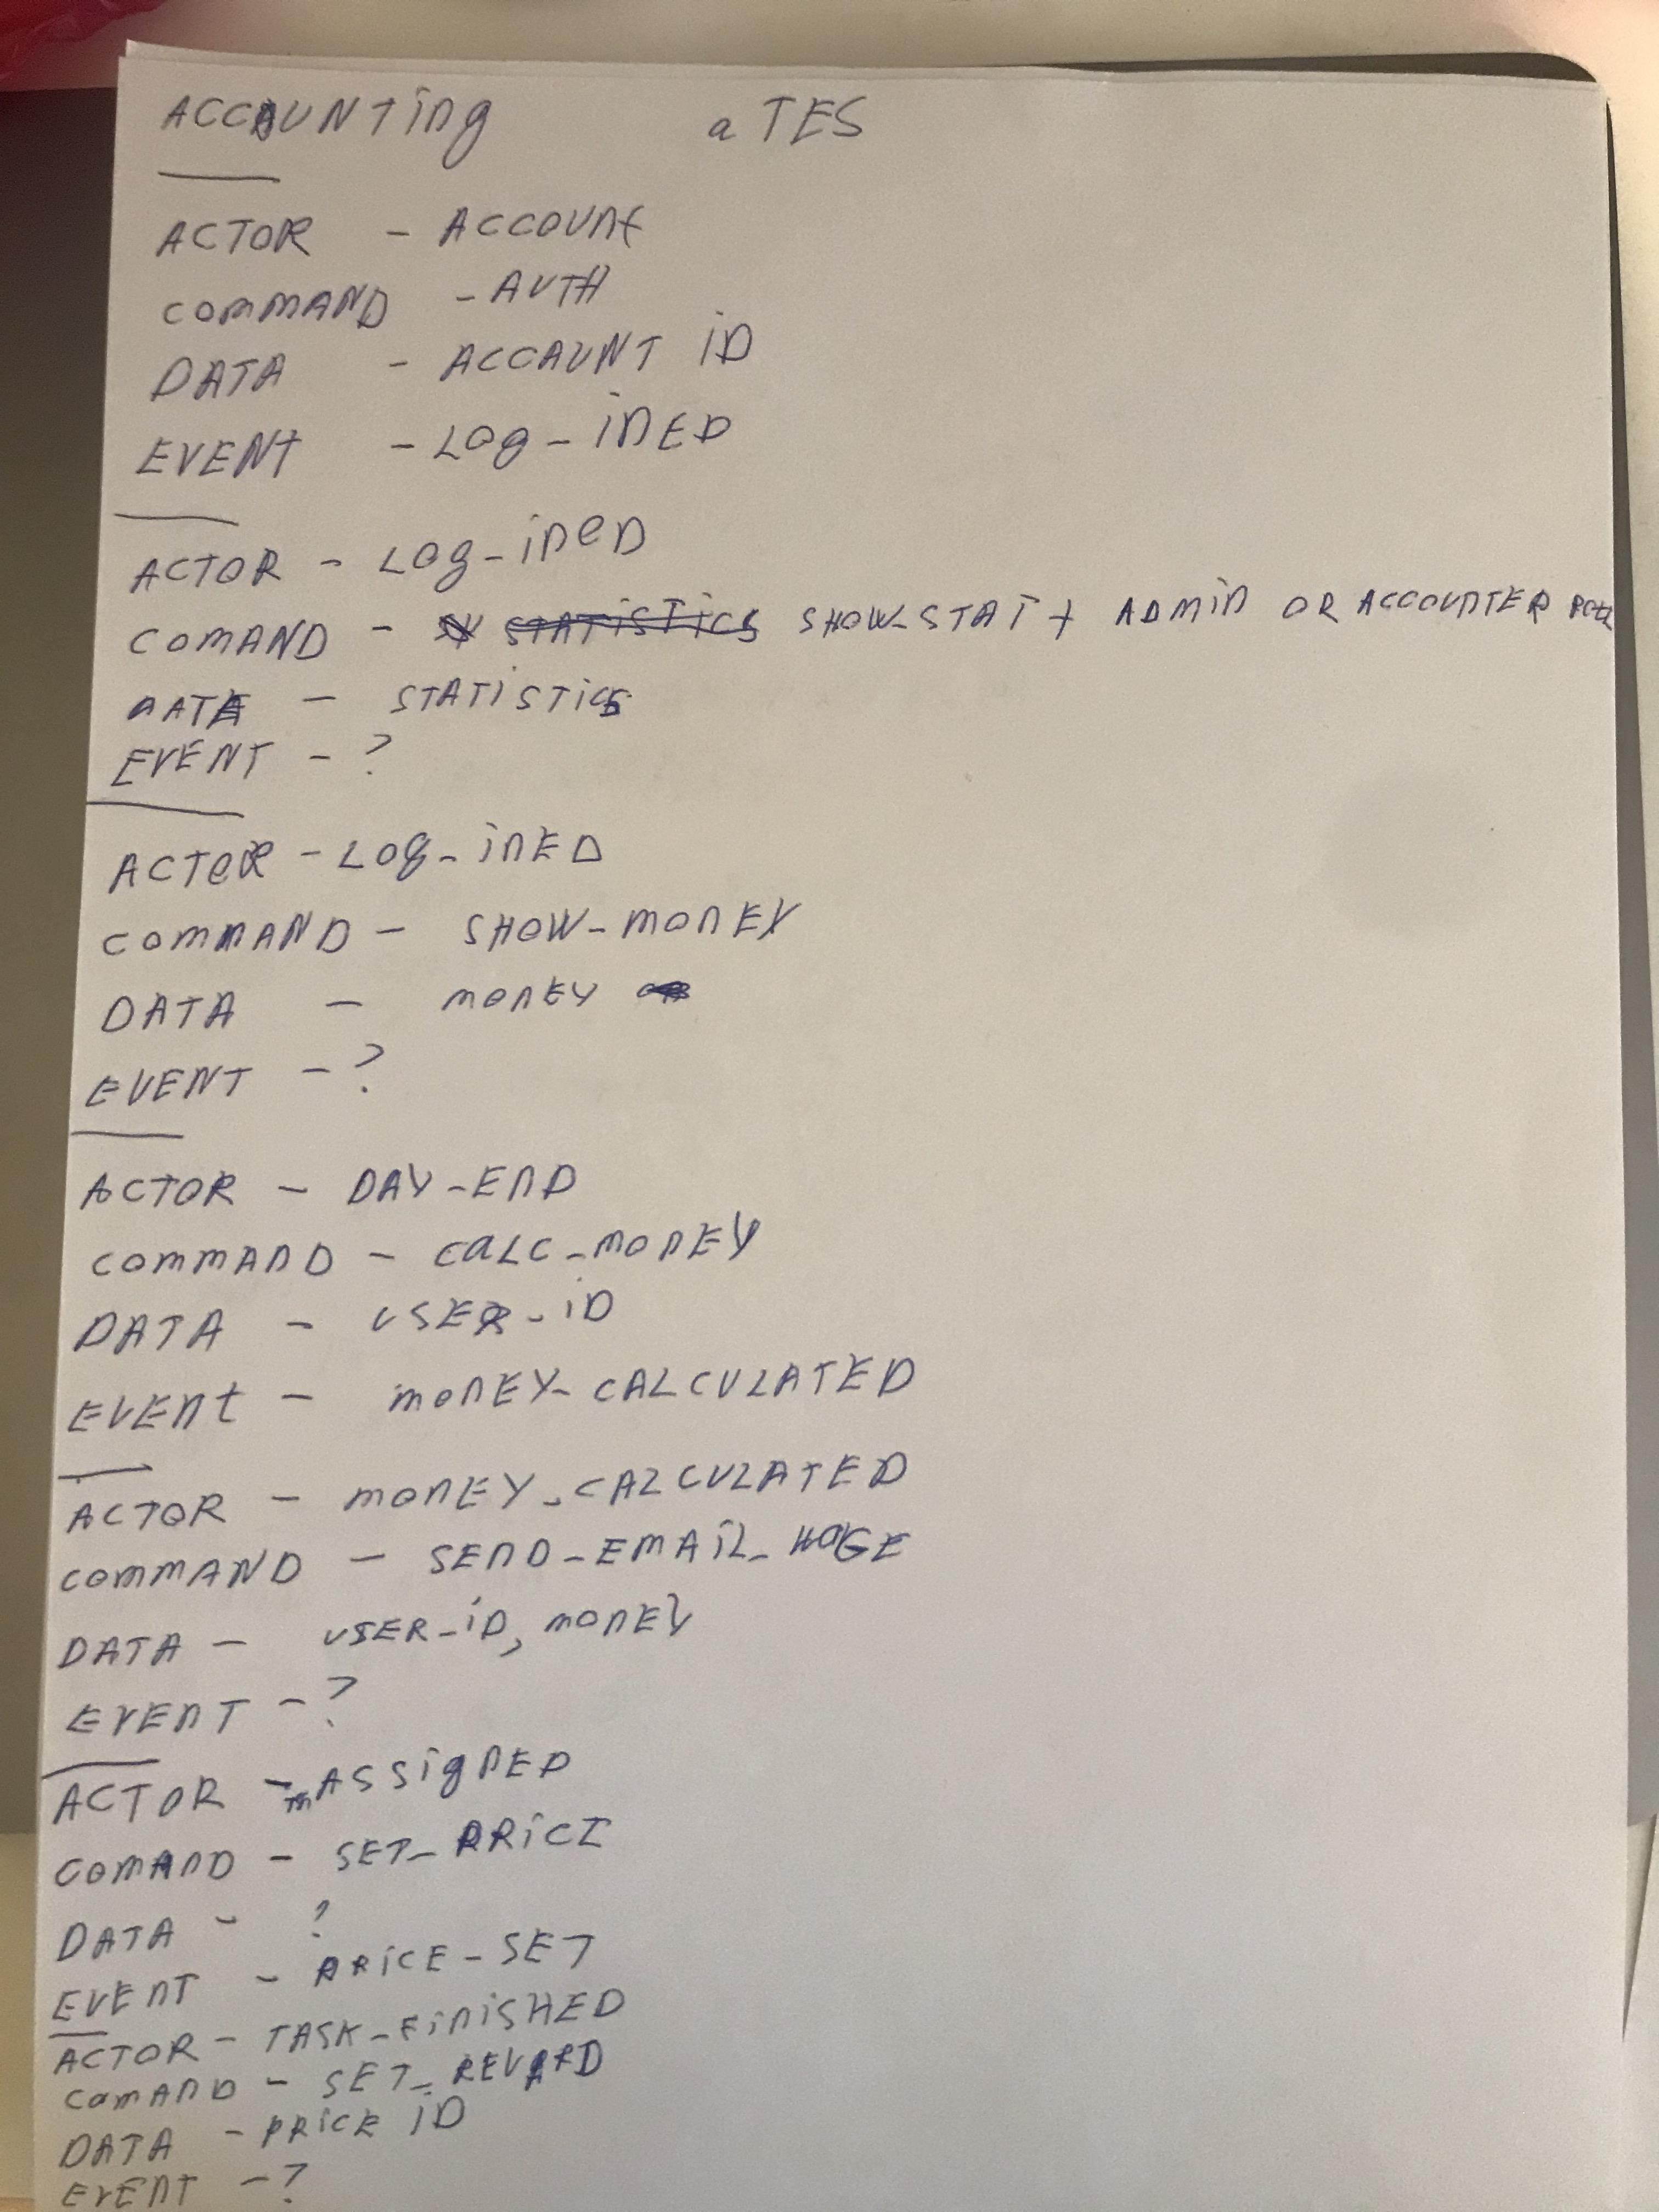 ACCAUNTing a TES
ACTOR - ACCOUNt
COMMAND - AUTH
DATA - ACCAUNT iD
EVENt - LOg-inED
ACTOR - LOg-ineD
COMAND - SHOW-STAT + ADMin OR ACCOUNTER
DATA - STATiSTiCS
EVENT - ?
ACTOR - LOg-inED
COMMAND - SHOW-MOnEY
DATA - MOnEY
EVENT - ?
ACTOR - DAY-EnD
COMMAnD - CaLC-MOnEY
DATA - USER-iD
EVEnt - MOnEY-CALCULATED
ACTOR - MOnEY-CALCULATED
COMMAND - SEnD-EMAiL-
DATA - USER-iD, MOnEY
EVEnT - ?
ACTOR - ASSignED
COMAnD - SET-PRiCE
DATA - ?
EVEnT - PRiCE-SET
ACTOR - TASK-FiniSHED
COMAnD - SET-REVARD
DATA - PRiCE iD
EVEnT - ?